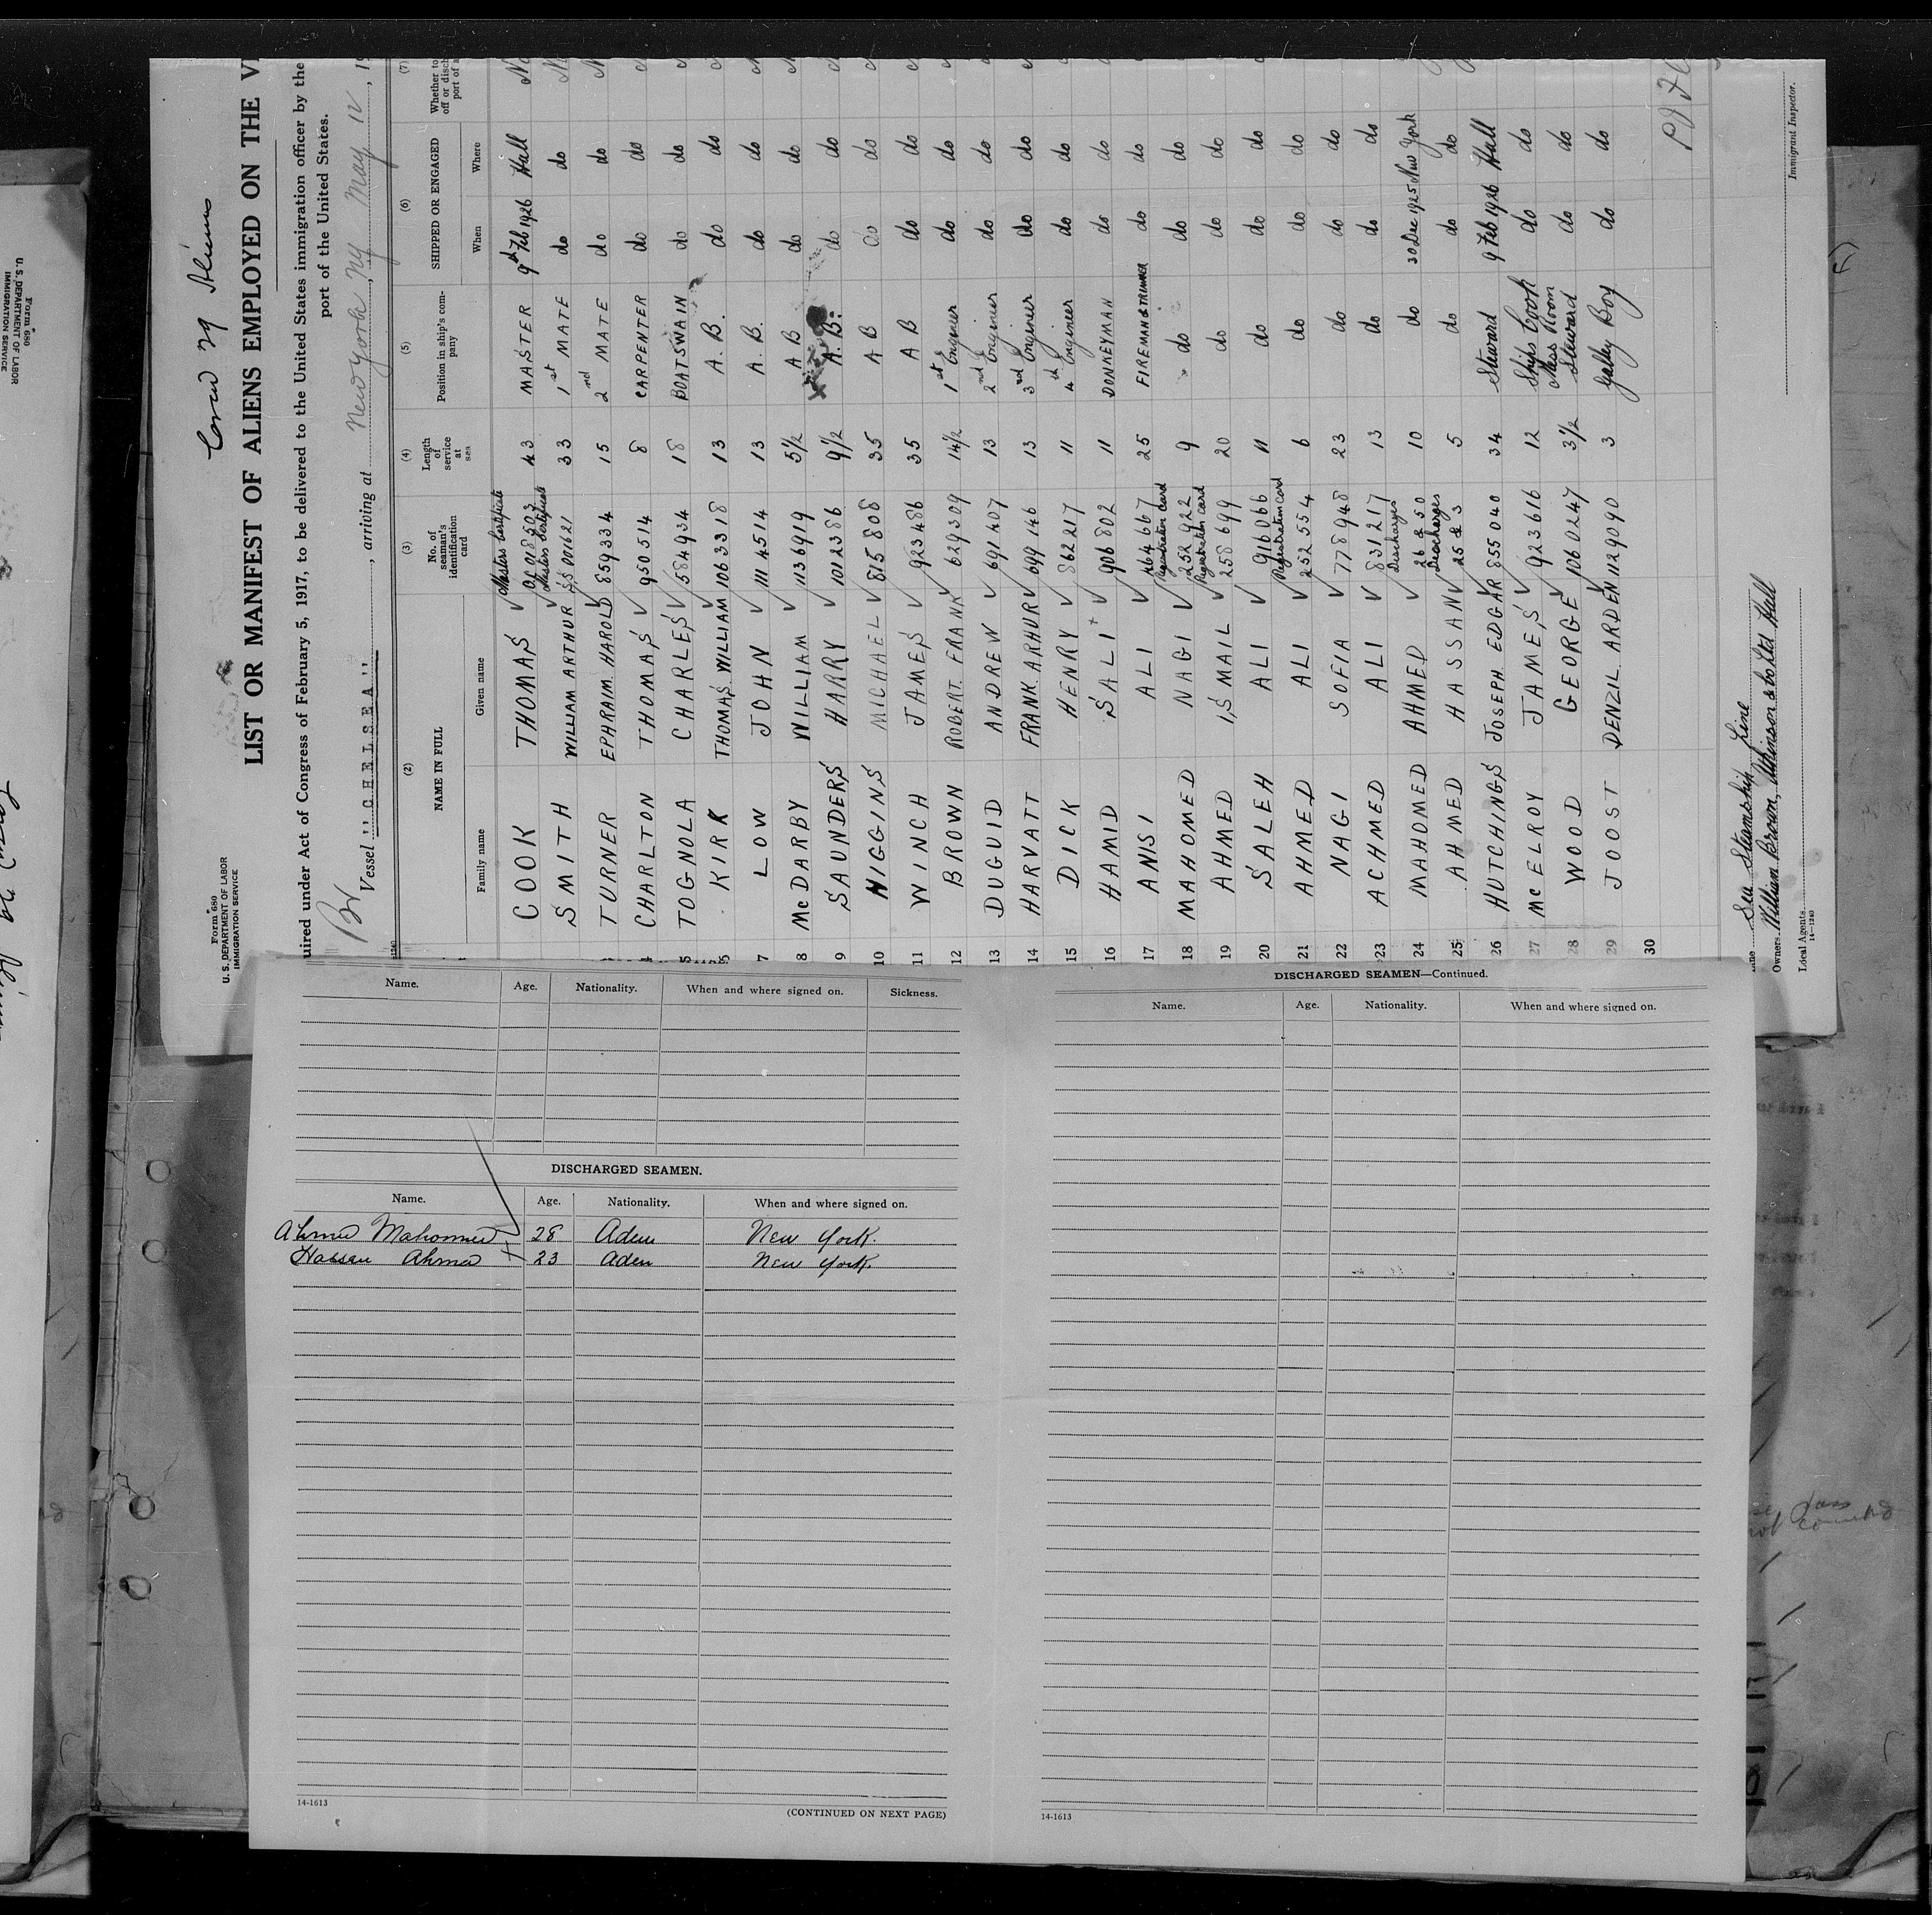 Form 680
U. S. DEPARTMENT OF LABOR
IMMIGRATION SERVICE
LIST OR MANIFEST OF ALIENS EMPLOYED ON THE
uired under Act of Congress of February 5, 1917, to be delivered to the United States immigration officer by the
port of the United States.
Br
Vessel "CHELSEA", arriving at New York, NY May 12, 19
(2) (3) (4) (5) (6) (7)
NAME IN FULL No. of seaman's identification card Length of service at sea Position in ship's company SHIPPED OR ENGAGED Whether to
Family name Given name When Where
COOK THOMAS Masters Certificate 43 MASTER 9th Feb 1926 Hull
SMITH WILLIAM ARTHUR Masters Certificate 001621 33 1st MATE do do
TURNER EPHRAIM HAROLD 859334 15 2nd MATE do do
CHARLTON THOMAS 950514 8 CARPENTER do do
TOGNOLA CHARLES 584934 18 BOATSWAIN do do
KIRK THOMAS WILLIAM 1063318 13 A.B. do do
7 LOW JOHN 1114514 13 A.B. do do
8 McDARBY WILLIAM 1136919 5½ A B do do
9 SAUNDERS HARRY 1012386 9½ A.B. do do
10 HIGGINS MICHAEL 815808 35 A B do do
11 WINCH JAMES 923486 35 A B do do
12 BROWN ROBERT FRANK 629309 14½ 1st Engineer do do
13 DUGUID ANDREW 691407 13 2nd Engineer do do
14 HARVATT FRANK ARHUR 699146 13 3rd Engineer do do
15 DICK HENRY 862217 11 4th Engineer do do
16 HAMID SALI 906802 11 DONKEYMAN do do
17 ANISI ALI 464667 25 FIREMAN & TRIMMER do do
18 MAHOMED NAGI Registration Card 252922 9 do do do
19 AHMED ISMAIL Registration Card 258699 20 do do do
20 SALEH ALI 916066 11 do do do
21 AHMED ALI Registration Card 252554 6 do do do
22 NAGI SOFIA 778948 23 do do do
23 ACHMED ALI 831217 13 do do do
24 MAHOMED AHMED Discharges 26 & 50 10 do 30 Dec 1925 New York
25 AHMED HASSAN Discharges 25 & 3 5 do do do
26 HUTCHINGS JOSEPH EDGAR 855040 34 Steward 9 Feb 1926 Hull
27 McELROY JAMES 923616 12 Ships Cook do do
28 WOOD GEORGE 1060247 3½ Mess Room Steward do do
29 JOOST DENZIL ARDEN 1129090 3 Galley Boy do do
30
Sea Steamship Line
Owners William Brown, Atkinson & Co Ltd Hull
Local Agents
14—1240
Immigrant Inspector.
Name. Age. Nationality. When and where signed on. Sickness.
DISCHARGED SEAMEN.
Name. Age. Nationality. When and where signed on.
Ahmed Mahomed 28 Aden New York.
Hassan Ahmed 23 Aden New York.
14-1613
(CONTINUED ON NEXT PAGE)
DISCHARGED SEAMEN—Continued.
Name. Age. Nationality. When and where signed on.
14-1613
Form 680
U. S. DEPARTMENT OF LABOR
IMMIGRATION SERVICE